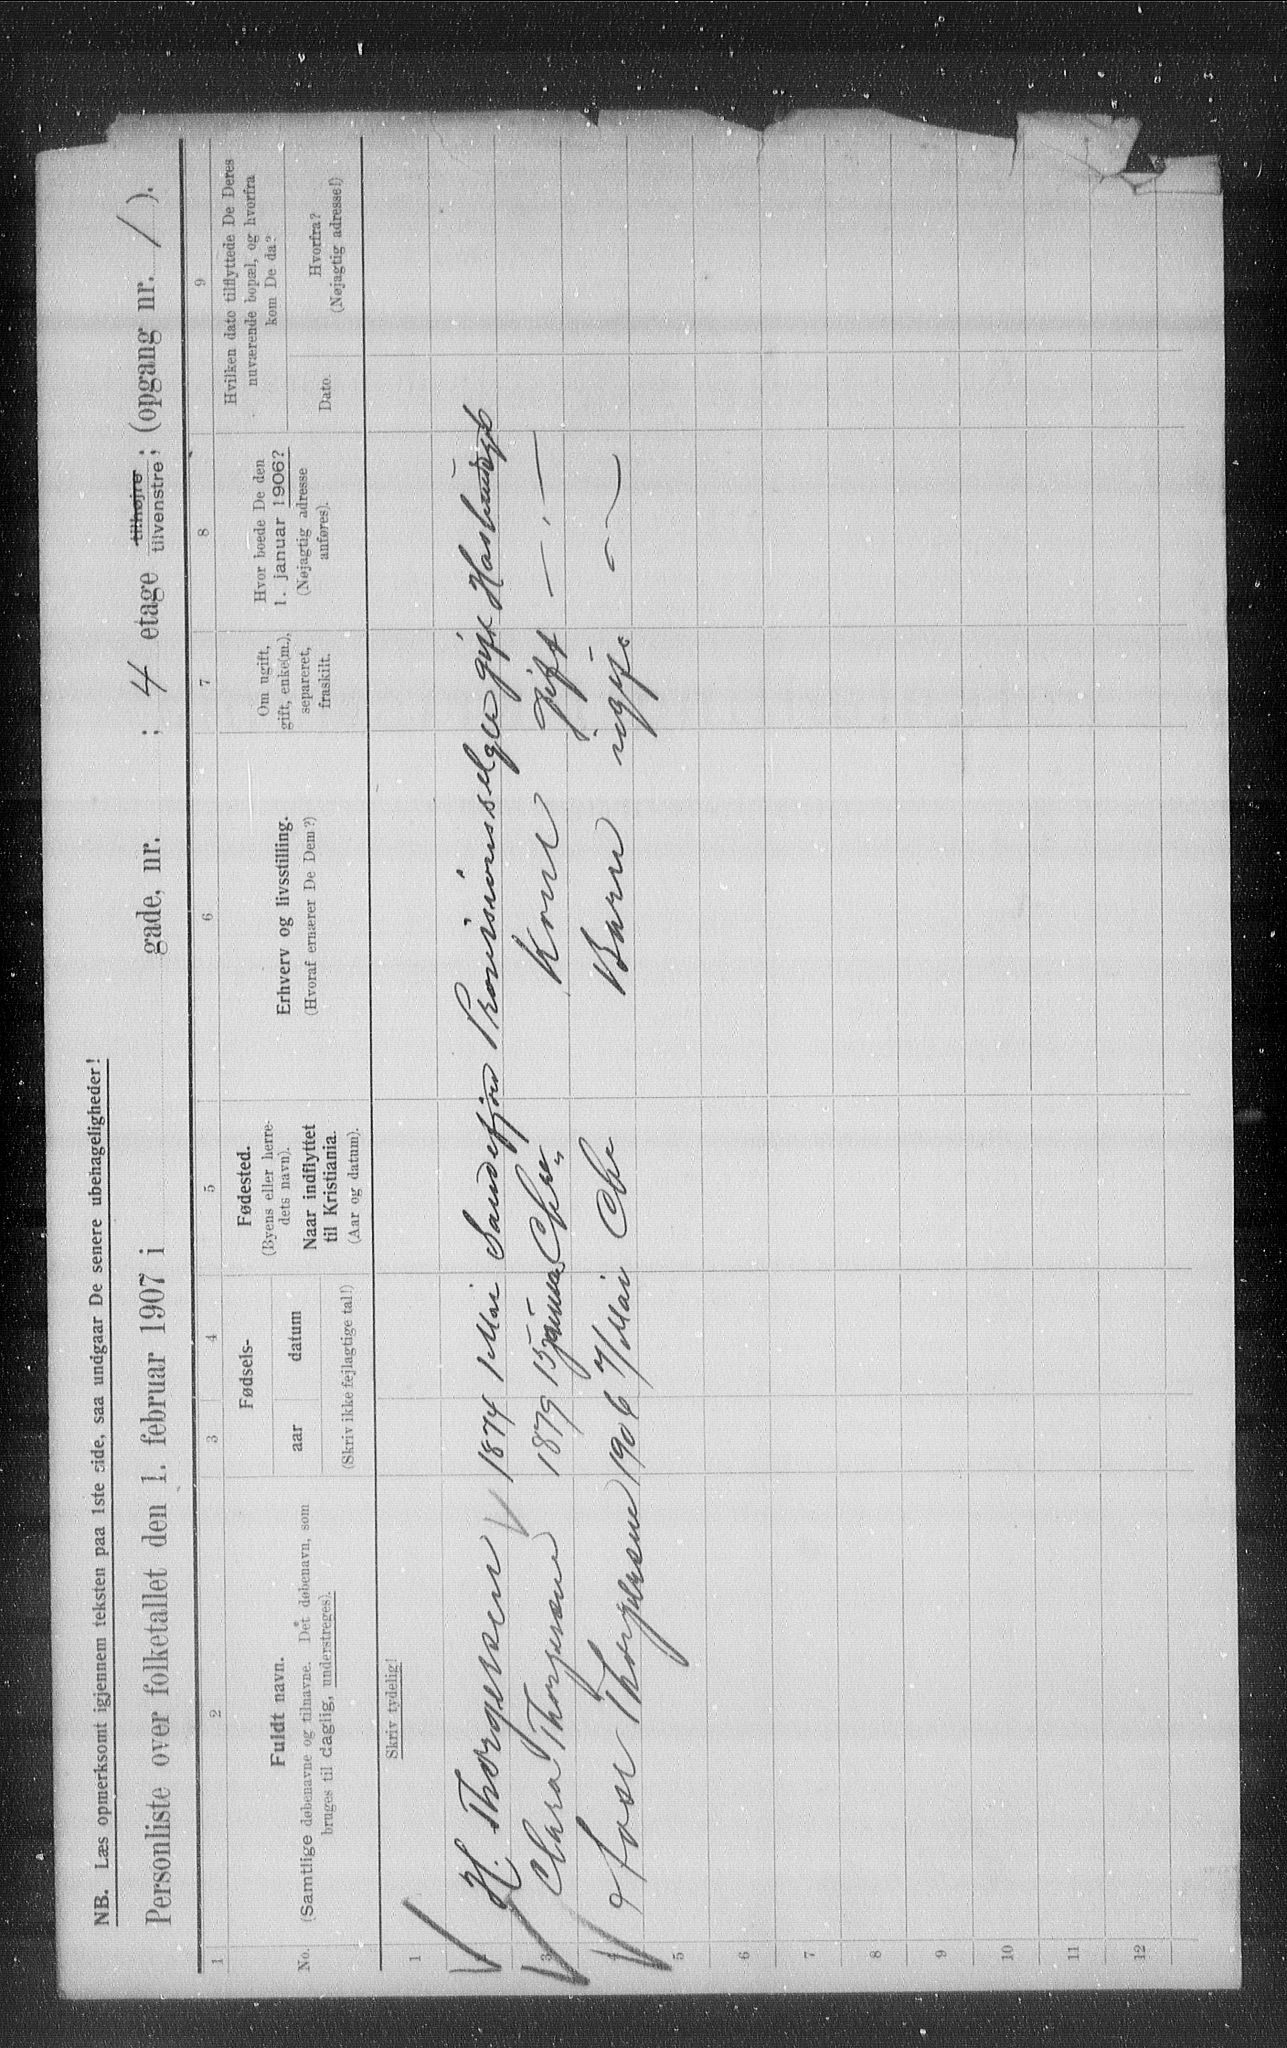 NB. Læs opmerksomt igjennem teksten paa 1ste side, saa undgaar De senere ubenageligheder!
Personliste over folketallet den 1. februar 1907 i gade, nr. ; 4 etage tilhøjre tilvenstre; (opgang nr. / ).
1 2 3 4 5 6 7 8 9
No.
Fuldt navn.
(Samtlige døbenavne og tilnavne. Det døbenavn, som
bruges til daglig, understreges).
Fødsels-
aar datum
(Skriv ikke fejlagtige tal!)
Fødested.
(Byens eller herre-
dets navn).
Naar indflyttet
til Kristiania.
(Aar og datum).
Erhverv og livsstilling.
(Hvoraf ernærer De Dem?)
Om ugift,
gift, enke(m.),
separeret,
fraskilt.
Hvor boede De den
1. januar 1906?
(Nøjagtig adresse
anføres).
Hvilken dato tilflyttede De Deres
nuværende bopæl, og hvorfra
kom De da?
Dato.
Hvorfra?
(Nøjagtig adresse!)
Skriv tydelig!
1
H. Thorgersen 1874 1 Mai Sandefjor gift
3 Clara Thorgersen 1879 15 januar Chr. Kone Gift — " —
4 Thorgersen 1906 7/Mai Chr Barn ugift - —
5
6
7
8
9
10
11
12